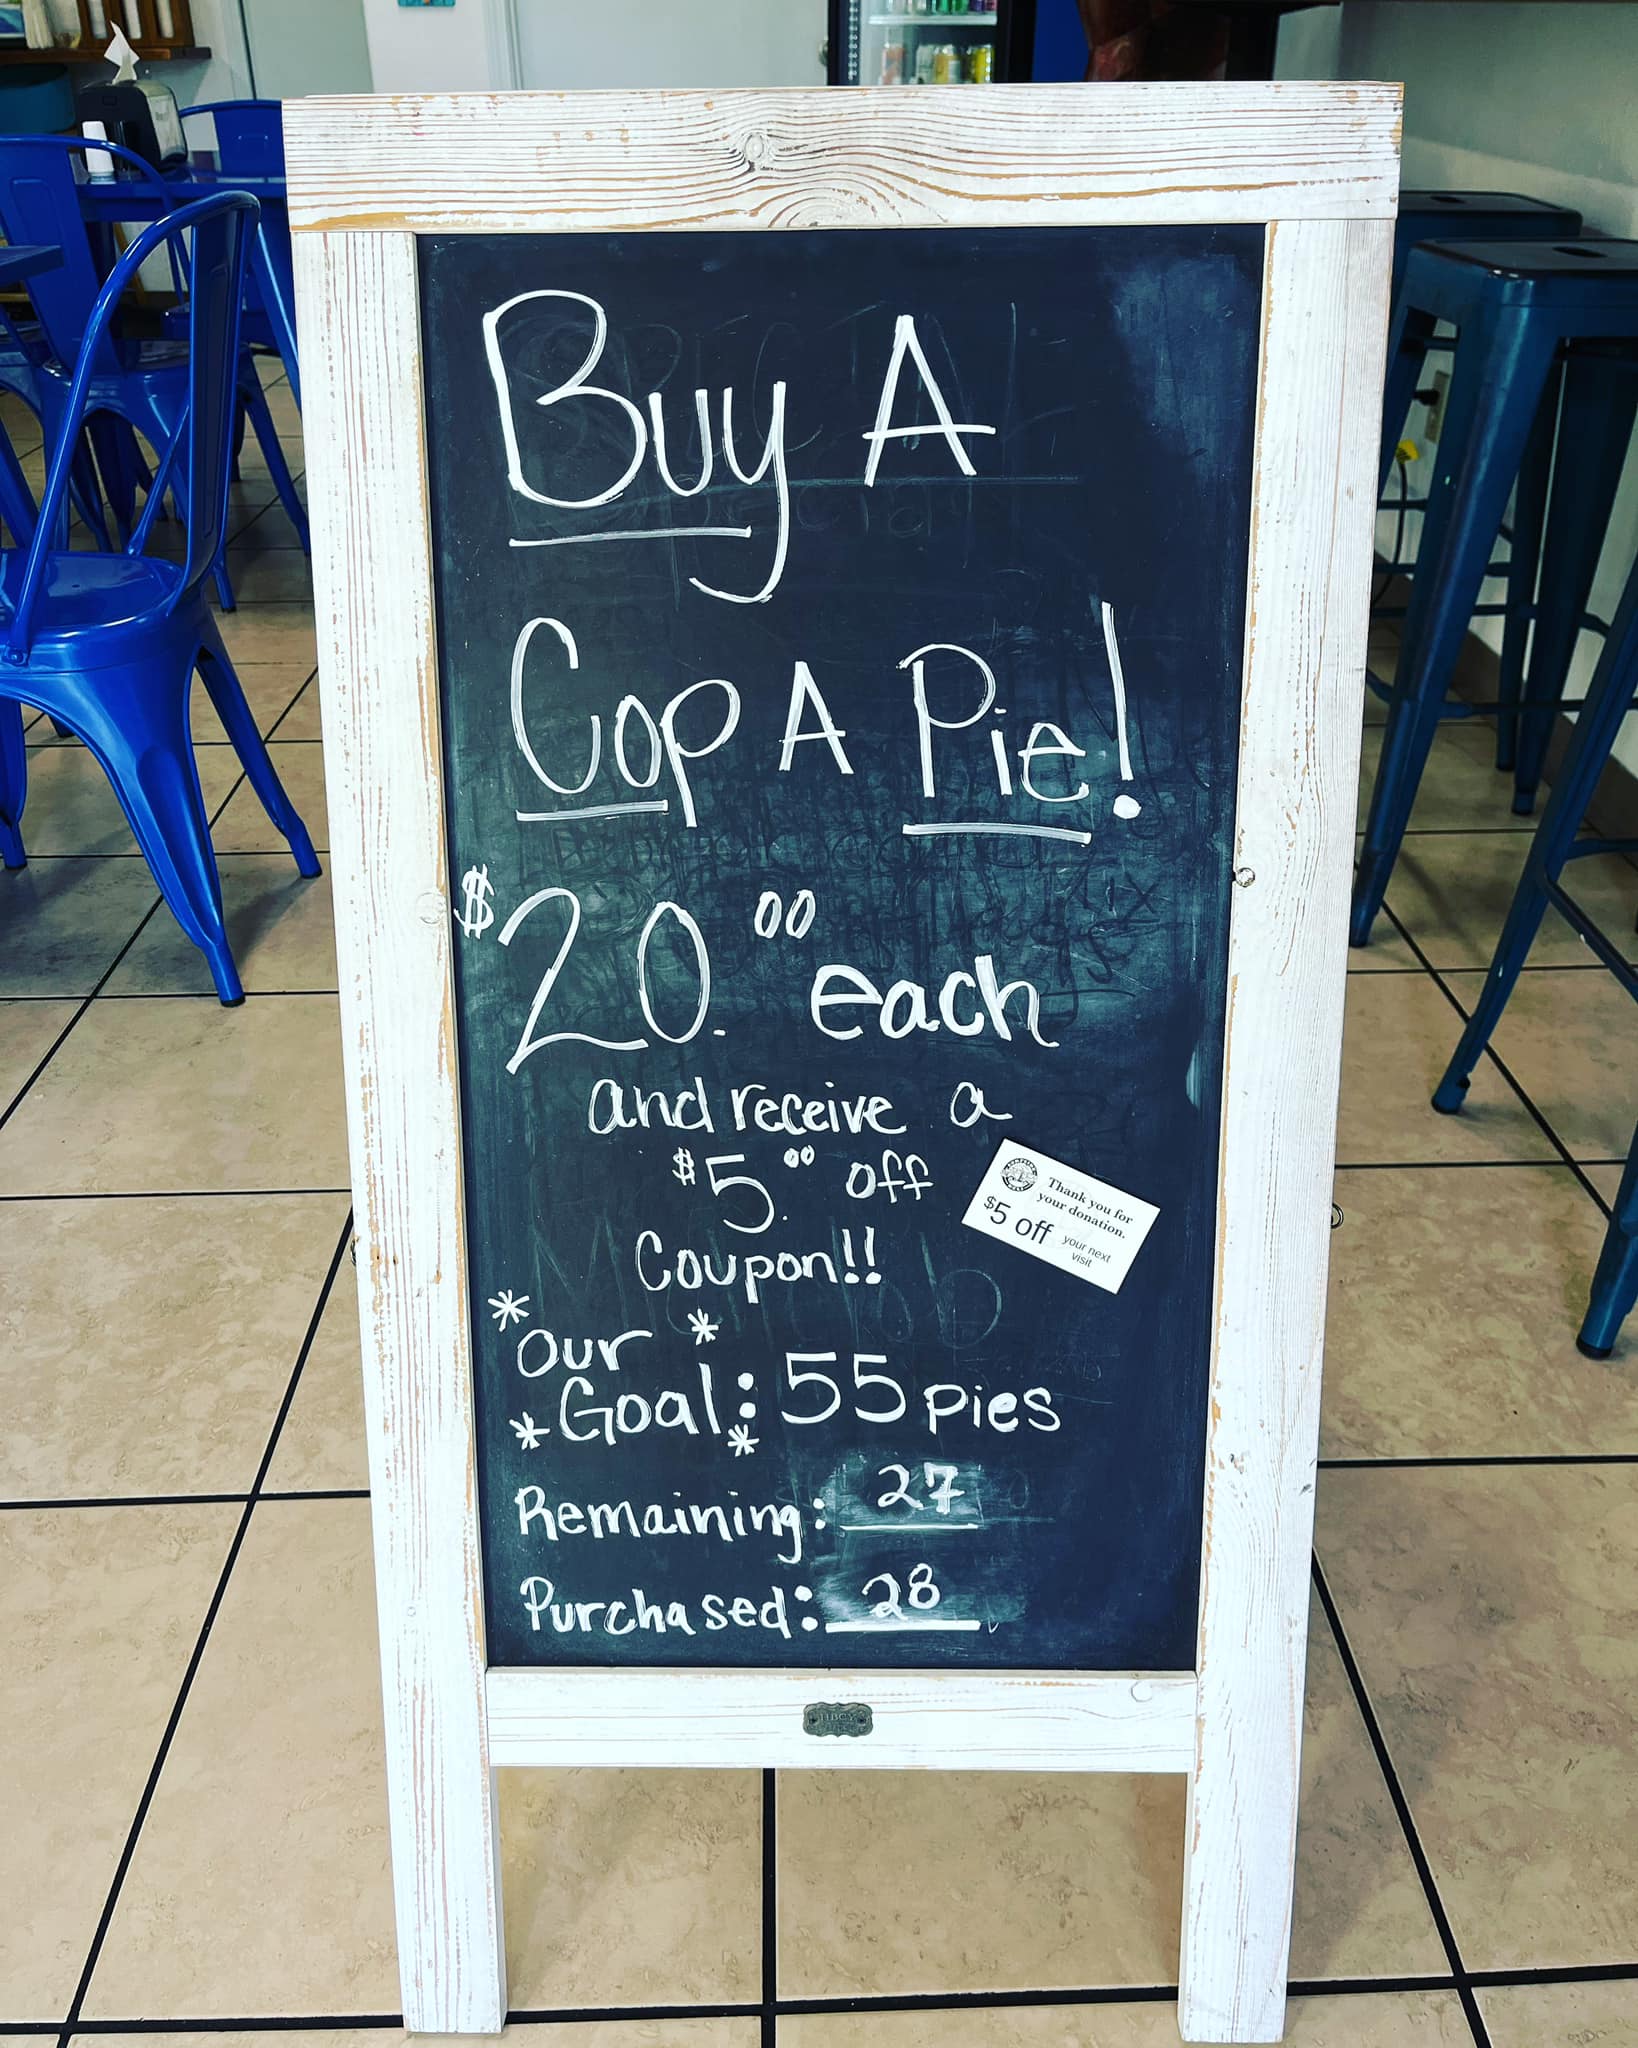 Buy A
Cop A Pie!
$20.00 each
and receive a
$5.00 off
Coupon!!
Thank you for
your donation.
$5 off your next
visit
*Our *
*Goal: 55 pies
*
Remaining: 27
Purchased: 28